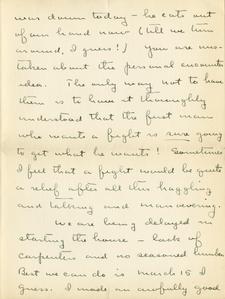 was down today – he eats out
of our hand now (till we turn
around, I guess!) You are mis-
taken about the personal encounter
idea. The only way not to have
them is to have it thoroughly
understood that the first man
who wants a fight is sure going
to get what he wants! Sometimes
I feel that a fight would be quite
a relief after all this haggling
and talking and manoevering.
We are being delayed in
starting the house – lack of
carpenters and no seasoned lumber
Best we can do is March 15 I
guess. I made an awfully good